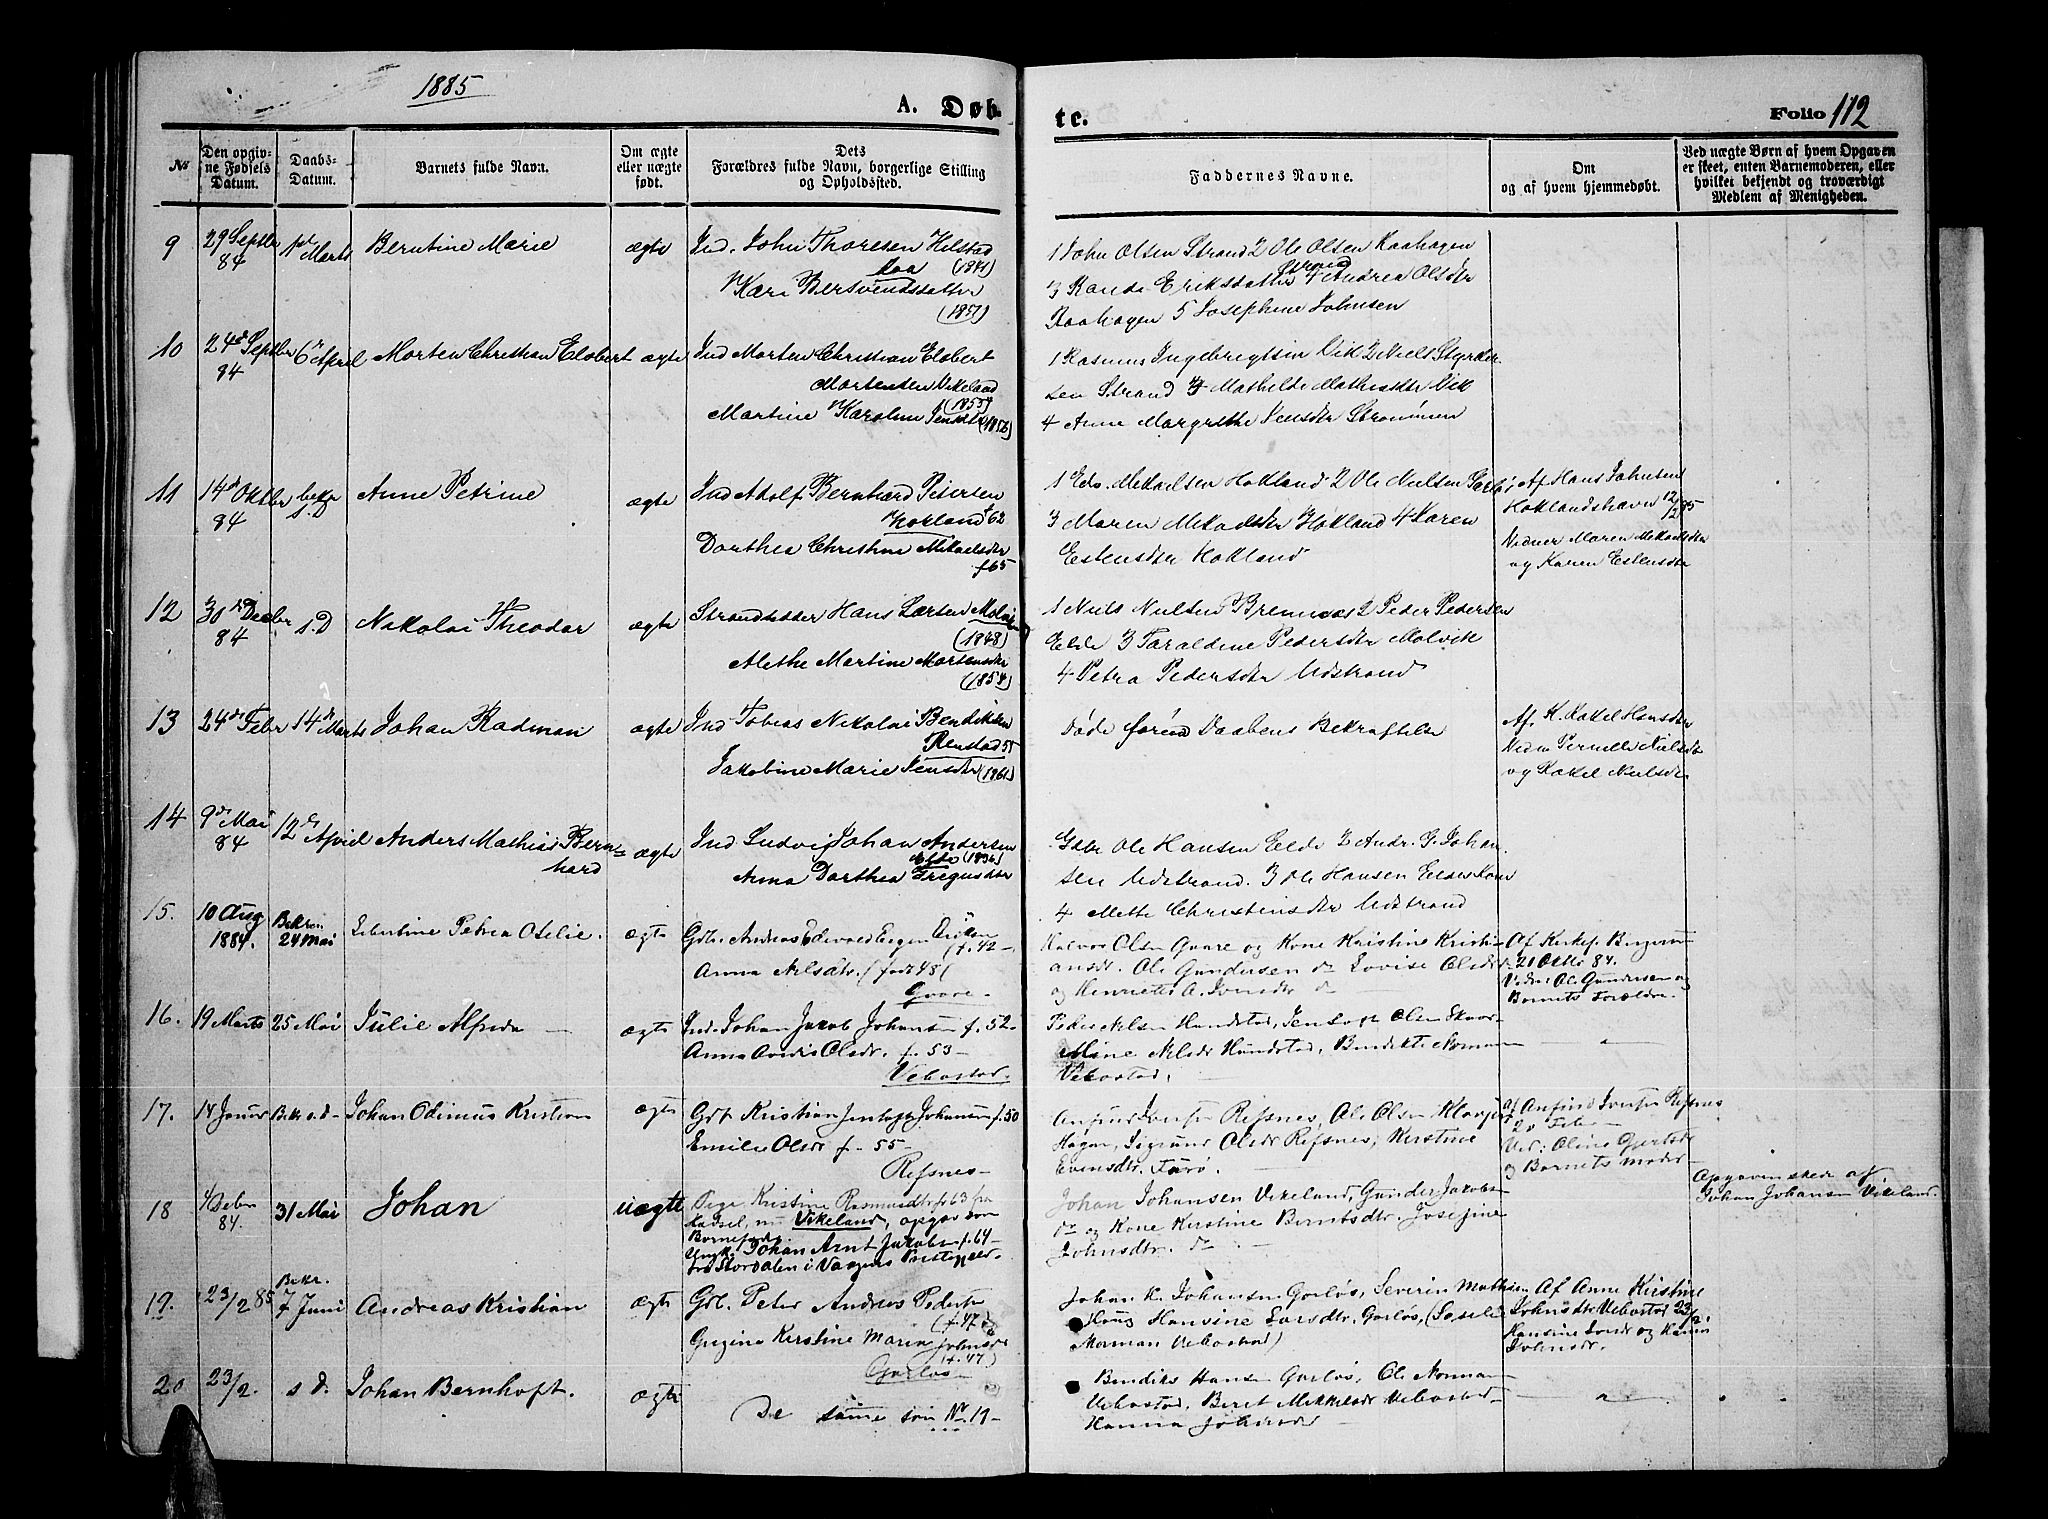 1885
A. Døb-
te.
Folio 112
No
Den opgiv-
ne Fødsels
Datum.
Daabs-
Datum.
Barnets fulde Navn.
Om ægte
eller uægte
født.
Dets
Forældres fulde Navn, borgerlige Stilling
og Opholdssted.
Faddernes Navne.
Om
og af hvem hjemmedøbt.
Ved uægte Børn af hvem Opgaven
er skeet, enten Barnemoderen, eller
hvilket bekjendt og troværdigt
Medlem af Menigheden.
9 29 Septbr 84 Marts Berntine Marie ægte Ind. John Thoresen
(1841)
Kari Bersvendsdatter
(1851)
1 John Olsen Strand 2 Ole Olsen Kaahagen
3 Eriksdatter Strand 4 Andrea Olsdtr
5 Josephine Johnsen
10 24d Septbr 84 6d April Morten Christian Elobert ægte Ind Morten Christian Elobert
Mortensen Vikeland
Martine Karoline Jensdtr (1856)
1 Rasmus Ingebregtsen Vik 2 Niels Styrker
sen Strand 3 Mathilde Mathisdtr Vik
4 Anne Margrethe Jensdtr Strømmen
11 14d Oktbr 84 Anne Petrine ægte Ind Adolf Bernhard Pedersen
62
Dorthea Christine Mikaelsdtr
f 65
1 Edv. Mekaelsen Hokland 2 Ole Nielsen
3 Maren Mekaelsdtr Hokland 4 Karen
Estensdtr Hokland
Af Hans Johnsen
Hoklandshavn 12/2 85
Vidner Maren Mekaelsdtr
og Karen Estensdtr
12 30d Decbr 84 s.D Nikolai Theodor ægte Strandsidder Hans Larsen
(1848)
Alethe Martine Mortensdtr
(1854)
1 Niels Nielsen Bremnes 2 Peder Pedersen
Elde 3 Taraldine Pedersdtr Molvik
4 Petra Pedersdtr Udstrand
13 24d Febr 14d Marts Johan Radman ægte Ind Tobias Nikolai Bendiksen
Renstad 55
Jakobine Marie Jensdtr (1861)
Døde førend Daabens Bekræftelse
Af K. Rakel Hansdtr
Pernelle Nielsdtr
og Rakel Nielsdtr
14 9d Mai 84 12d April Anders Mathias Bern=
hard
ægte Ind Ludvig Johan Andersen
Anna Dorthea Gregusdtr
Gdbr Ole Hansen Elde 2 Andr. G. Johan
sen Udstrand. 3 Ole Hansen Eldes Kone
4 Mette Christensdtr Udstrand
15. 10 Aug 1884. Bekr. 24 Mai Petrea Otelie. ægte Gdbr. Andreas Edevard
f. 42
Anna Nilsdtr. (født 48)
Gaare.
Halvor Olsen Gaare og Kone Kristine Kristi-
ansdr. Ole Gundersen do Lovise Olsdr do
og Henriette A. Jonsdtr do
20 Okto 84.
Vidn: Ol. Gundersen og
Barnets Forældre.
16. 19 Marts 25 Mai Julie Alfrida ægte Ind. Johan Jakob Johansen f. 52
Anna Olsdr. f. 53
Vebostad.
Peder Nilsen Hundstad, Jensoft Olsen
Mine Nilsdr Hundstad, Bendikte Norman
Vebostad.
17. 14 Januar Bekr s.d. Johan Odinius Kristian ægte Gdb Kristian Jentoft Johansen f. 50
Emilie Olsdr f. 55
Refsnes
Anfind Ivers Refsnes, Ole Olsen
Hagan, Sigrund Olsdr Refsnes, Kirstine
Evensdtr. Færø.
af Anfind Ivers Refsnes
20 Feb
Vid: Oline Gjertsdr
og Barnets moder
18 Debr 84. 31 Mai Johan uægte Pige Kristine Rasmusdtr f. 63 fra
Kadsel, nu Vikeland, opgav som
Barnefader:
Ungk. Johan Arnt Jakobs f. 64
fra Stordalen i Vaagens Præstegjæld.
Johan Johansen Vikeland, Gunder Jakobs
do og Kone Kirstine Berntsdtr. Josefine
Johnsdtr. do
Opgaven skede af
Johan Johansen Vikeland.
19. 23/2 85 Bekr. 7 Juni Andreas Kristian ægte Grb. Peter Andreas Peders
(f. 47)
Gurina Kirstine Marie Johnsdr
(f. 47)
Gorløs
Johan K. Johansen Gorløs, Severin Mathisen
Haug Hansine Larsdtr. Gorløs,
Norman Vebostad)
Af Anne Kristine
Johnsdtr Vebostad 23/2
Hansine Larsdr og Hanna
Johnsdr.
20 23/2. s d. Johan Bernhoft. ægte De samme som Nr. 19
Bendiks Hansen Gorløs, Ole Norman
Vebostad, Beret Mikkelsdr Vebostad
Hanna Johnsdr